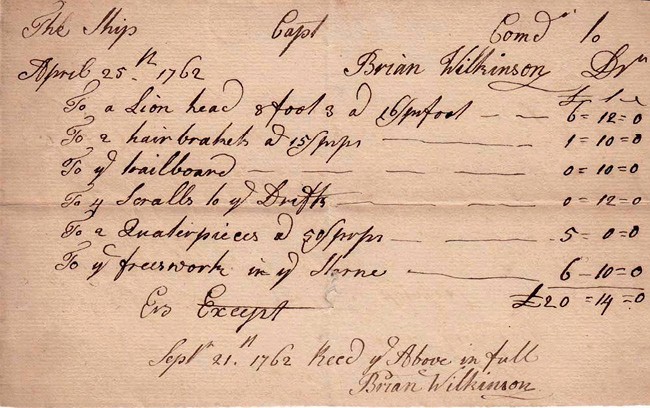 The Ship Capt Comd.r To
April 25.th 1762 Brian Wilkinson Dr
£ s
To a Lion head 8 foot 3 a 16/pr foot — — 6=12=0
To 2 hair brakets a 15/pr ps — 1=10=0
To ye trailboard — — — 0=10=0
To 4 Scralls to ye Drifts — — 0=12=0
To 2 Quaterpieces a 50/pr ps — — 5=0=0
To ye freeswork in ye Sterne — 6-10=0
Ers Except £20=14=0
Sept.r 21.st 1762 Reed ye Above in full
Brian Wilkinson